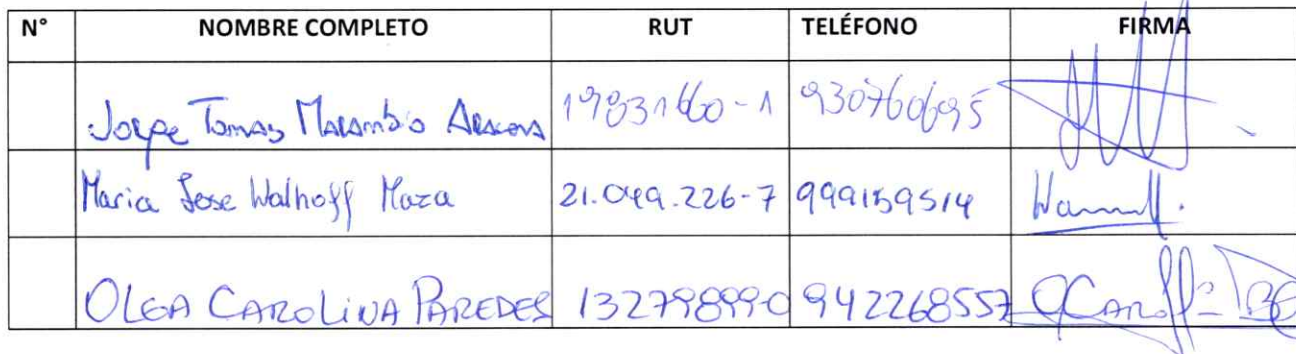 N° NOMBRE COMPLETO RUT TELÉFONO FIRMA
Jorge Tomas Marambio Aracena 19831660-1 930760695
Maria Jose Walhoff Maza 21.049.226-7 999159514
OLGA CAROLINA PAREDES 13279899-0 942268557